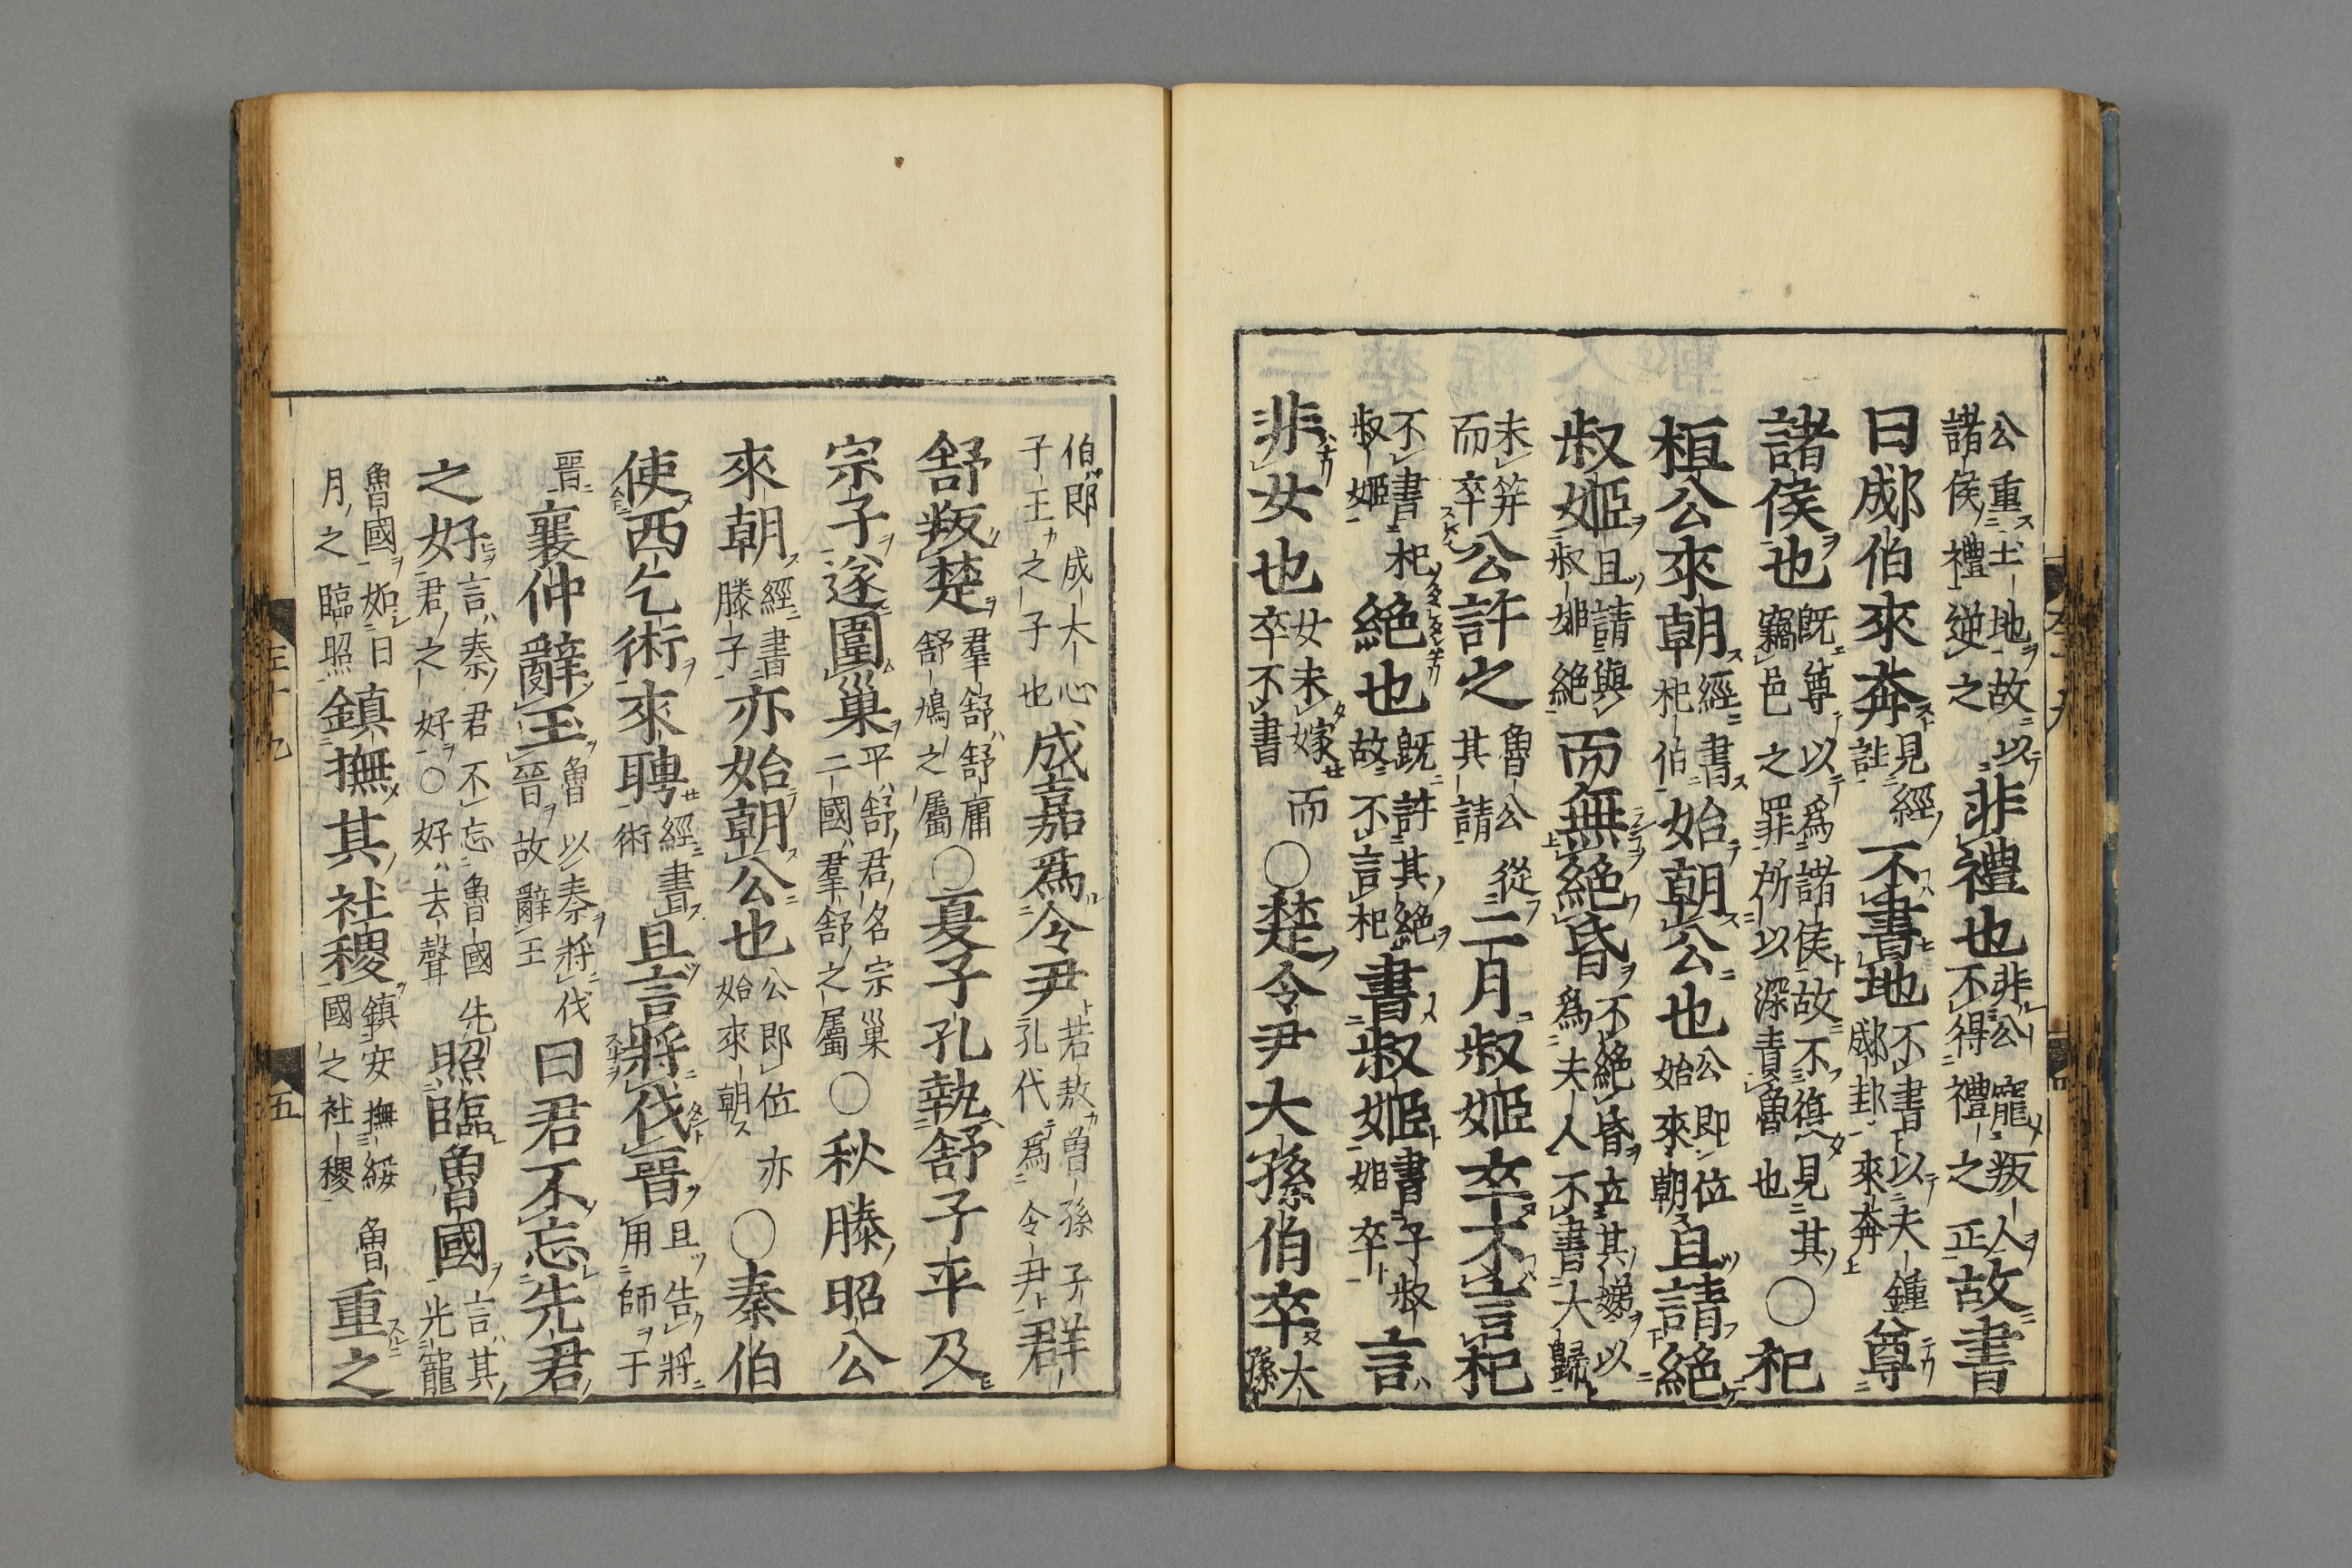 公重土地故以諸侯禮逆之非禮也非公寵叛人不得禮之正故書
曰郕伯來奔見經註不書地不書以夫鍾郕邽來奔尊
諸侯也既尊以爲諸侯故不復見其竊邑之罪所以深責魯也〇杞
桓公來朝經書杞伯始朝公也公即位始來朝且請絕
叔姬且請與叔姬絕而無絕昏不絕昏立其娣以爲夫人不書大歸
未笄而卒公許之魯公從其請二月叔姬卒不言杞
不書杞叔姬絕也既許其絕故不言杞書叔姬書子叔姬卒言
非女也女未嫁而卒不書〇楚令尹大孫伯卒大孫
伯即成大心子玉之子也成嘉爲令尹若敖曽孫子孔代爲令尹群
舒叛楚羣舒舒庸舒鳩之屬〇夏子孔執舒子平及
宗子遂圍巢平舒君名宗巢二國羣舒之屬〇秋滕昭公
來朝經書滕子亦始朝公也公即位亦始來朝〇秦伯
使西乞術來聘經書術且言將伐晉且告將用師于
晉襄仲辭玉魯以秦將伐晉故辭玉曰君不忘先君
之好言秦君不忘魯國先君之好〇好去聲照臨魯國言其光寵
魯國如日月之臨照鎮撫其社稷鎮安撫綏魯國之社稷重之
五